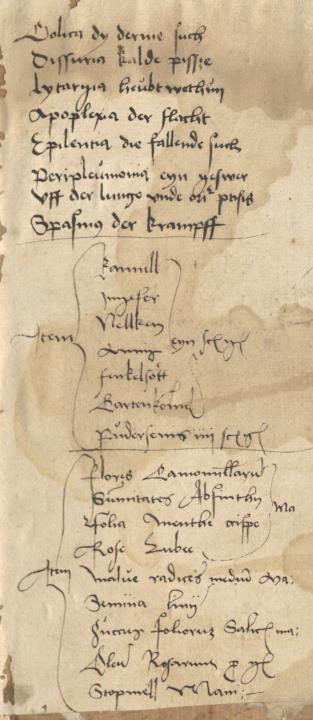 Colica dy derme such
Dissuria kalde pisse
lytargia heubt wethun
Apoplexia der slacht
Epilentia die fallende such
Peripleumonia eyn geswer
Vff der lunge vnde ptisis
Spasmus der krampff
kannell
Jngfer
Nellken
Item eyn
fenkelsött
Gartenkömel
Pudersenis iiij
flores Camomillarum
Summitates Absinthij
folia menthe crispe Ma
Rose Rubee
Item malue radices Ma:
Semina linij
foliorum Salicis ma:
Olei Rosarum
Stopmell